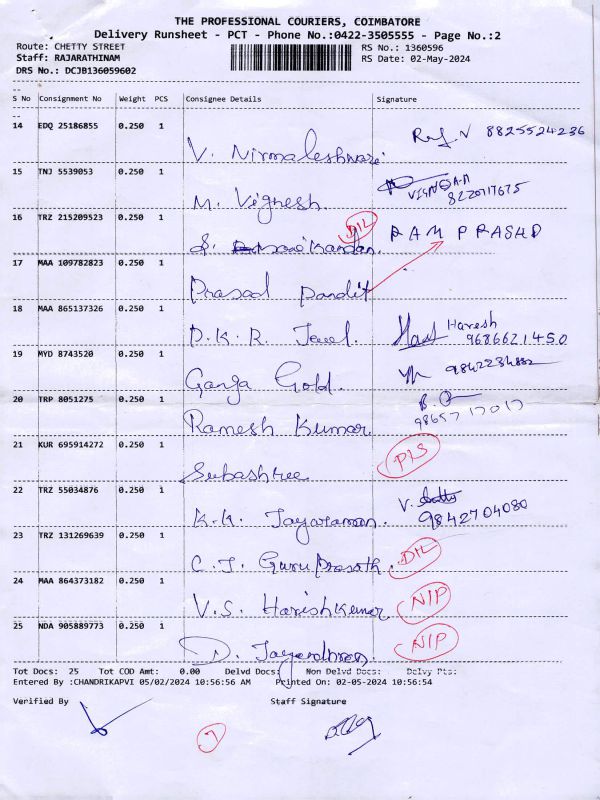 THE PROFESSIONAL COURIERS, COIMBATORE
Delivery Runsheet - PCT - Phone No.:0422-3505555 - Page No.:2
Route: CHETTY STREET RS No.: 1360596
Staff: RAJARATHINAM RS Date: 02-May-2024
DRS No.: DCJB136059602
S No Consignment No Weight PCS Consignee Details Signature
14 EDQ 25186855 0.250 1 V. Nirmaleshwari 8825524236
15 TNJ 5539053 0.250 1 M. Vignesh
16 TRZ 215209523 0.250 1 S. DIL RAM PRASHD
17 MAA 109782823 0.250 1 Prasad Pandit
18 MAA 865137326 0.250 1 D.K.R. Jewel. Haresh 9686621450
19 MYD 8743520 0.250 1 Ganga Gold.
20 TRP 8051275 0.250 1 Ramesh Kumar 9865717017
21 KUR 695914272 0.250 1 Subashree PLS
22 TRZ 55034876 0.250 1 K.K. Jayaraman. V. 9842704080
23 TRZ 131269639 0.250 1 C.J. Guru Prasath. DIL
24 MAA 864373182 0.250 1 V.S. Harish Kumar NIP
25 NDA 905889773 0.250 1 D. NIP
Tot Docs: 25 Tot COD Amt: 0.00 Delvd Docs: Non Delvd Docs: Delvy Pts:
Entered By :CHANDRIKAPVI 05/02/2024 10:56:56 AM Printed On: 02-05-2024 10:56:54
Verified By Staff Signature